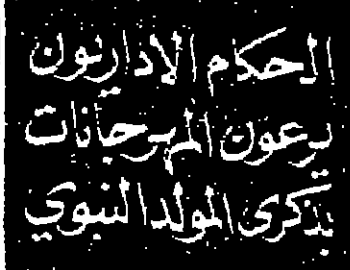 الحكام الاداريون
يرعون المهرجانات
بذكرى المولد النبوي